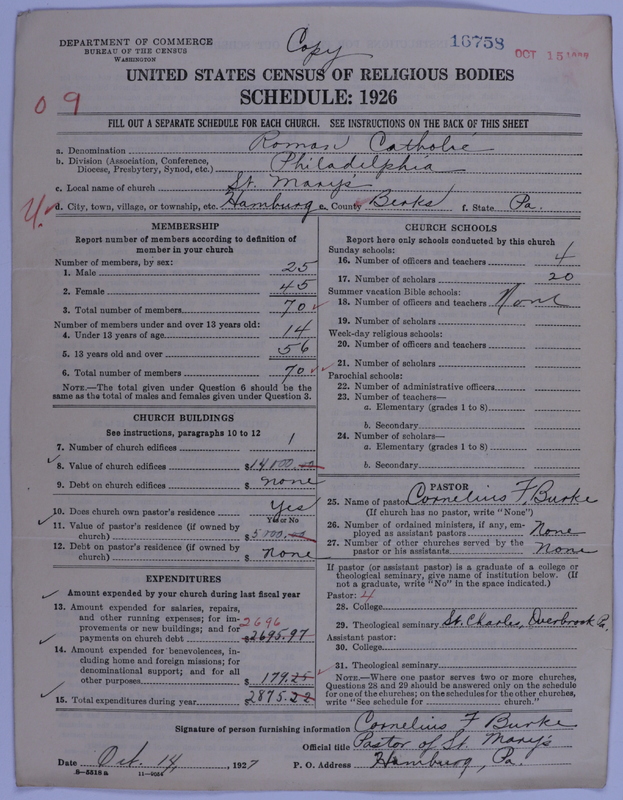 DEPARTMENT OF COMMERCE
BUREAU OF THE CENSUS
WASHINGTON
Copy
16758
OCT 15
UNITED STATES CENSUS OF RELIGIOUS BODIES
SCHEDULE: 1926
09
FILL OUT A SEPARATE SCHEDULE FOR EACH CHURCH. SEE INSTRUCTIONS ON THE BACK OF THIS SHEET
a. Denomination Roman Catholic
b. Division (Association, Conference,
Diocese, Presbytery, Synod, etc.) Philadelphia
c. Local name of church St. Mary's
d. City, town, village, or township, etc. Hamburg e. County Berks f. State Pa.
MEMBERSHIP
Report number of members according to definition of
member in your church
Number of members, by sex:
1. Male 25
2. Female 45
3. Total number of members 70
Number of members under and over 13 years old:
4. Under 13 years of age 14
5. 13 years old and over 56
6. Total number of members 70
NOTE.—The total given under Question 6 should be
same as the total of males and females given under Question 3.
CHURCH BUILDINGS
See instructions, paragraphs 10 to 12
7. Number of church edifices 1
8. Value of church edifices $14,100.00
9. Debt on church edifices $ none
10. Does church own pastor's residence Yes
Yes or No
11. Value of pastor's residence (if owned by
church) $5700.00
12. Debt on pastor's residence (if owned by
church) $ none
EXPENDITURES
Amount expended by your church during last fiscal year
13. Amount expended for salaries, repairs,
and other running expenses; for im-
provements or new buildings; and for 2696
payments on church debt $2695.97
14. Amount expended for benevolences, in-
cluding home and foreign missions; for
denominational support; and for all
other purposes $179.25
15. Total expenditures during year $2875.22
CHURCH SCHOOLS
Report here only schools conducted by this church
Sunday schools:
16. Number of officers and teachers 4
17. Number of scholars 20
Summer vacation Bible schools:
18. Number of officers and teachers None
19. Number of scholars
Week-day religious schools:
20. Number of officers and teachers
21. Number of scholars
Parochial schools:
22. Number of administrative officers
23. Number of teachers—
a. Elementary (grades 1 to 8)
b. Secondary
24. Number of scholars—
a. Elementary (grades 1 to 8)
b. Secondary
PASTOR
25. Name of pastor Cornelius F. Burke
(If church has no pastor, write "None")
26. Number of ordained ministers, if any, em-
ployed as assistant pastors None
27. Number of other churches served by the
pastor or his assistants None
If pastor (or assistant pastor) is a graduate of a college or
theological seminary, give name of institution below. (If
not a graduate, write "No" in the space indicated.)
Pastor: 4
28. College
29. Theological seminary St. Charles, Overbrook Pa.
Assistant pastor:
30. College
31. Theological seminary
NOTE.—Where one pastor serves two or more churches,
Questions 28 and 29 should be answered only on the schedule
for one of the churches; on the schedules for the other churches,
write "See schedule for church."
Signature of person furnishing information Cornelius F Burke
Official title Pastor of St. Mary's
Date Oct. 14, 1927 P. O. Address Hamburg, Pa.
8—5518a 11—9054